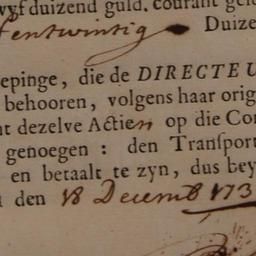 vyf duizend guld. courant gel
fentwintig Duize
epinge, die de DIRECTEU
behooren, volgens haar orig
nt dezelve Actien op die Com
genoegen : den Transport
en betaalt te zyn, dus bey
den 18 Decemb 173